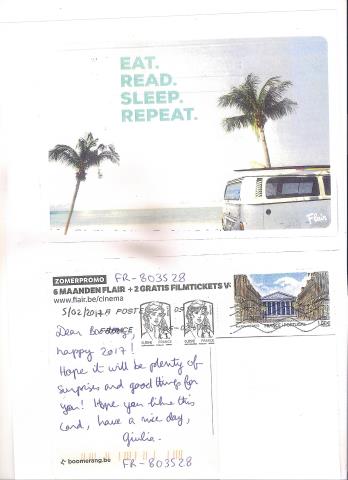 EAT.
READ.
SLEEP.
REPEAT.
Flair
FR-803528
ZOMERPROMO
6 MAANDEN FLAIR + 2 GRATIS FILMTICKETS V
www.flair.be/cinema
5/02/2017
LA POSTE
FRANCE
Dear
happy 2017!
Hope it will be plenty of
surprises and good things for
you! Hope you like this
card, have a nice day,
Giulia.
boomerang.be
FR-803528
FRANCE
FRANCE
FRANCE